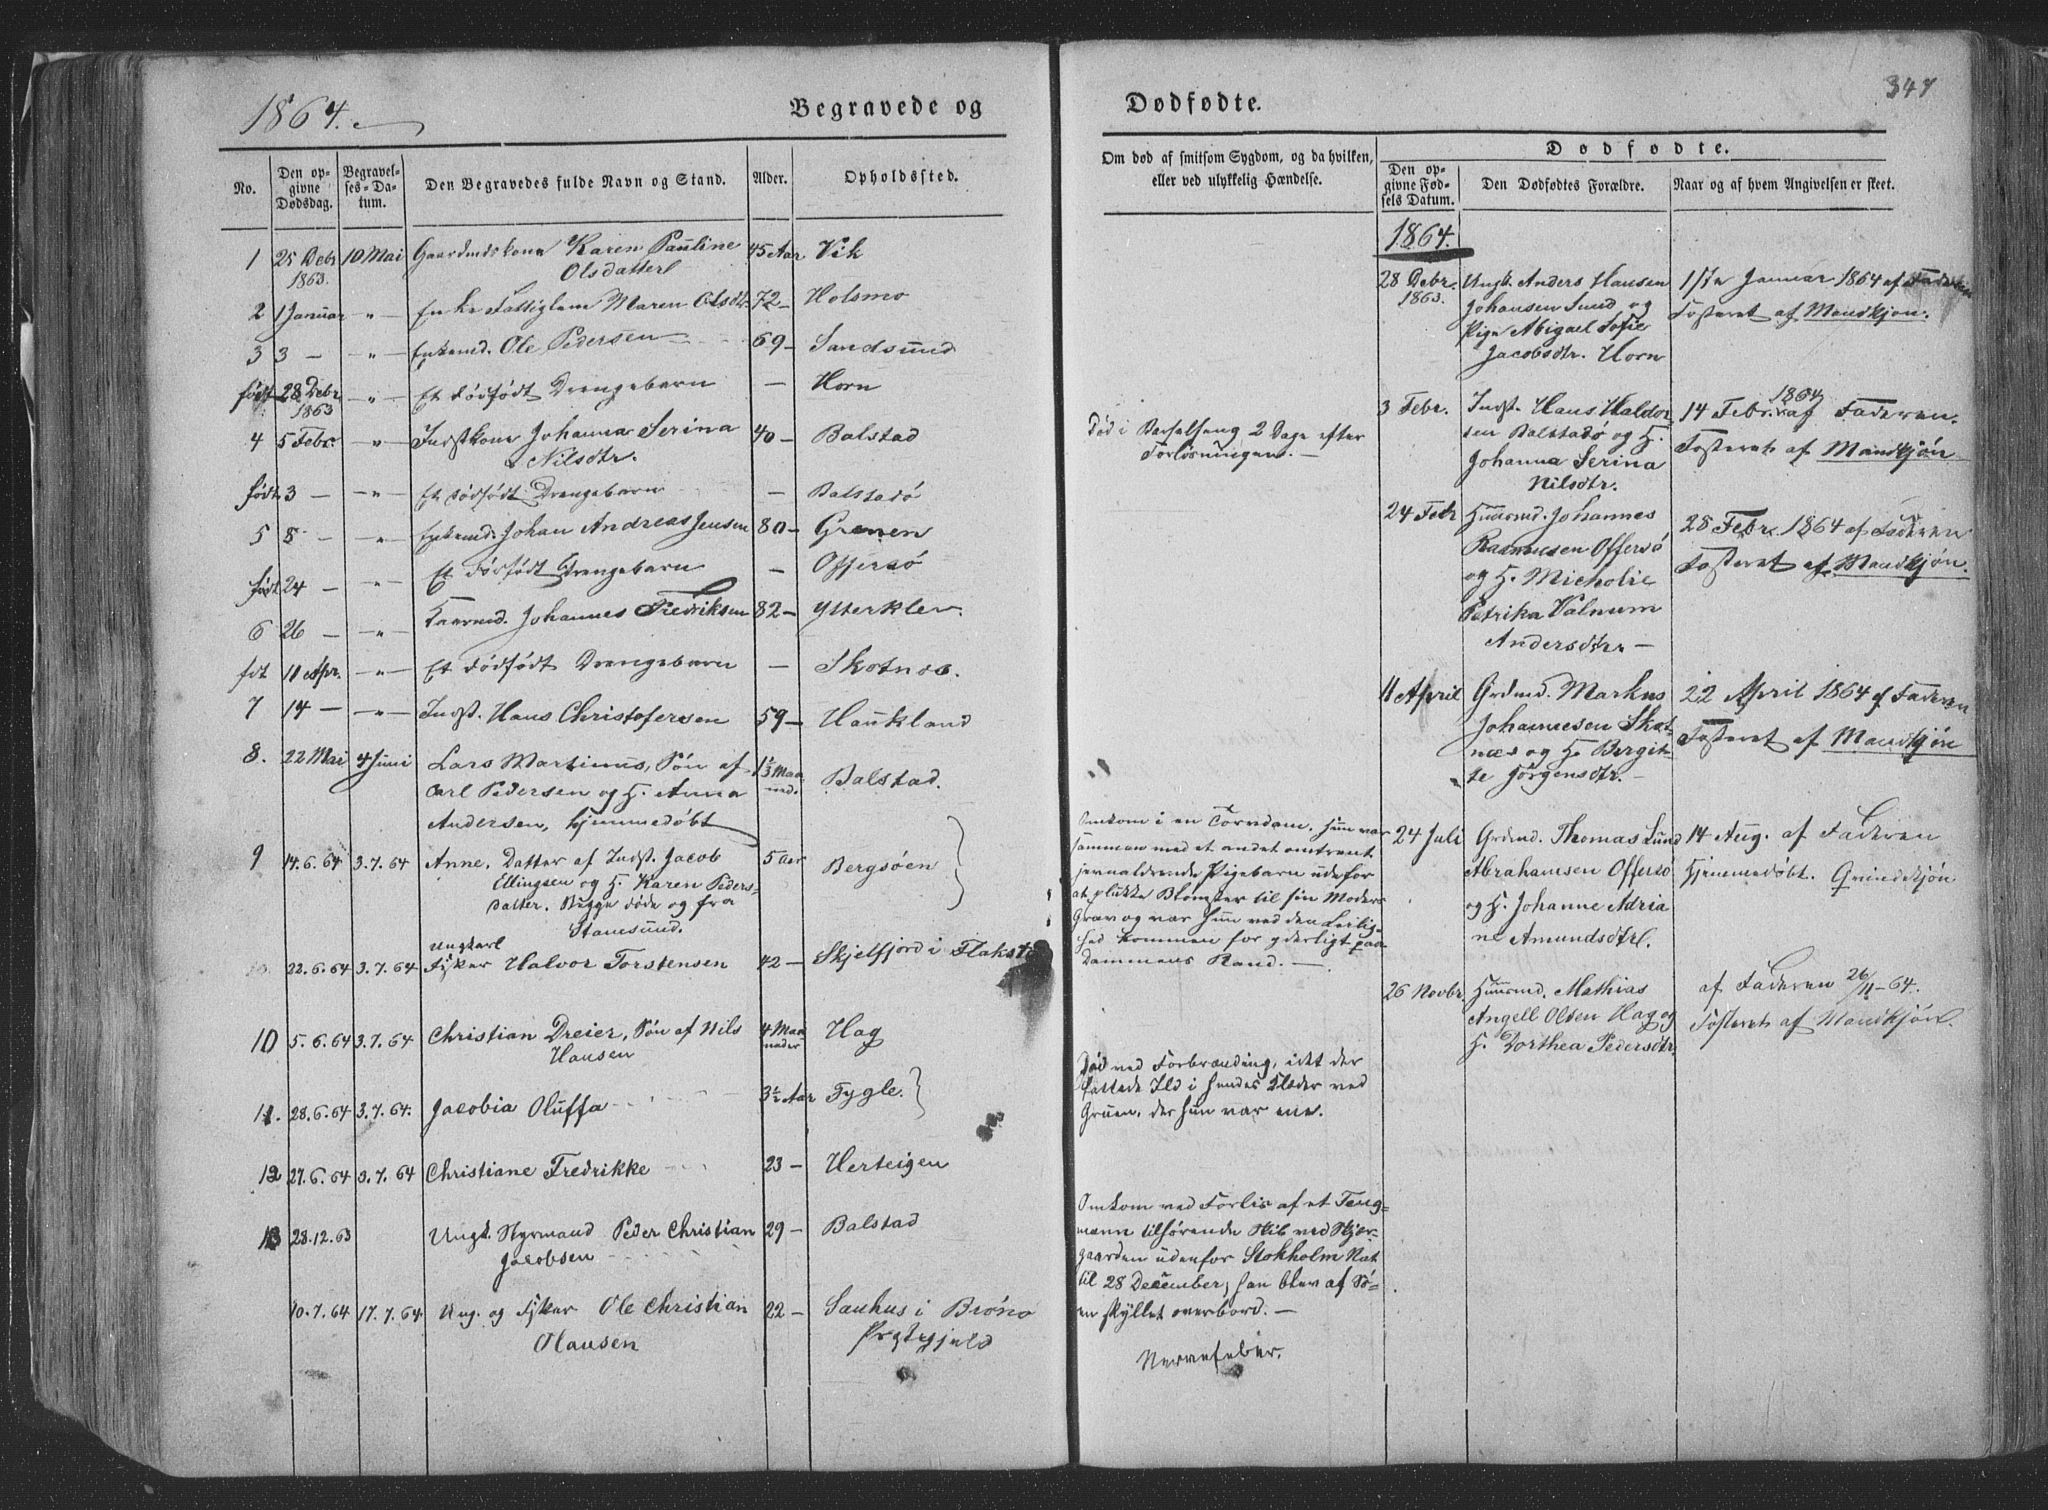 1864.
Begravede og
No.
Den op-
givne
Dødsdag.
Begravel-
ses-Da-
tum.
Den Begravedes fulde Navn og Stand.
Alder.
Opholdssted.
1 25 Debr 10 Mai Gaardmdskone Karen Pauline 45 Aar Vik
1863. Olsdatter
2 1 Januar -"- Enke Fattiglem Maren Olsdtr 72 - Holsmo
3 3 - -"- Enkemd. Ole Pedersen 69 - Sandsund
født 28 Debr -"- Et dødfødt Drengebarn - Horn
1863
4 5 Febr. -"- Indstkone Johanna Serina 40 - Balstad
Nilsdtr.
født 3 - -"- Et dødfødt Drengebarn - Balstadø
5 8 - -"- Enkemd. Johan Andreas Jensen 80 - Grenen
født 24 - -"- Et dødfødt Drengebarn - Offersø
6 26 - -"- Kaarmd. Johannes Fredriksen 82 - Ytterklev
født 11 Apr. -"- Et dødfødt Drengebarn - Skotnes.
7 14 - -"- Indst. Hans Christofersen 59 - Haukland
8. 22 Mai 4 Juni Lars Martinus, Søn af 1 1/3 Maa- Balstad.
Carl Pedersen og H. Anna ned.
Andersen, hjemmedøbt
9 14.6.64 3.7.64 Anne, Datter af Indst. Jacob 5 Aar Bergsøen
Ellingsen og H. Karen Peders-
datter. Begge døde og fra
Stamsund.
Ungkarl
22.6.64 3.7.64 Fisker Halvor Torstensen 42 - Skjelfjord i Flakstad
10 5.6.64 3.7.64 Christian Dreier, Søn af Nils 4 Maa- Hag
Hansen nader
11. 28.6.64 3.7.64. Jacobia Oluffa 3½ Aar Fygle.
12 27.6.64 3.7.64 Christiane Fredrikke 23 - Herteigen
13 28.12.63 Ungk. Styrmand Peder Christian 29 - Balstad
Jacobsen
10.7.64 17.7.64 Ung. og Fisker Ole Christian 22 - Sauhus i Brønø
Olausen Præstegjeld
Dødfødte.
347
Om død af smitsom Sygdom, og da hvilken,
eller ved ulykkelig Hændelse.
Død i Barselseng 2 Dage efter
Forløsningen. -
Omkom i en Torvdam. Hun var
sammen med et andet omtrent
jevnaldrende Pigebarn udefor
at plukke Blomster til sin Moders
Grav og var hun ved den Leilig-
hed kommen for yderligt paa
Dammens Rand. -
Død ved Forbrænding, idet der
fattede Ild i hendes Klæder ved
Gruen, der hun var ene.
Omkom ved Forlis af et
tilhørende Skib ved Skjær-
gaarden udenfor Stokholm Nat
til 28 December; han blev af Sø-
en skyllet overbord. -
Nervefeber.
Dødfødte.
Den op-
givne Fød-
sels Datum.
Den Dødfødtes Forældre.
Naar og af hvem Angivelsen er skeet.
1864.
28 Debr. Ungk. Anders Hansen 17de Januar 1864 af Faderen
1863. Johansen Sund og Fosteret af Mandkjøn.
Pige Abigael Sofie
Jacobsdtr. Horn
3 Febr. Indst. Hans Haldor- 14 Febr. 1864 af Faderen.
sen Balstadø og H. Fosteret af Mandkjøn
Johanna Serina
Nilsdtr.
24 Febr Huusmd. Johannes 28 Febr. 1864 af Faderen
Rasmusen Offersø Fosteret af Mandkjøn.
og H. Micholie
Petrika Valnum
Andersdtr. -
11 April Grdmd. Markus 22 April 1864 af Faderen
Johannesen Skot- Fosteret af Mandkjøn
næs og H. Bergit-
te Jørgensdtr. -
24 Juli Grdmd. Thomas Lund 14 Aug. af Faderen
Abrahamsen Offersø Hjemmedøbt. Qvindekjøn
og H. Johanne Adria
ne Amundsdtr.
26 Novbr. Huusmd. Mathias af Faderen 26/11-64.
Angell Olsen Hag og Fosteret af Mandkjøn.
H. Dorthea Pedersdtr.